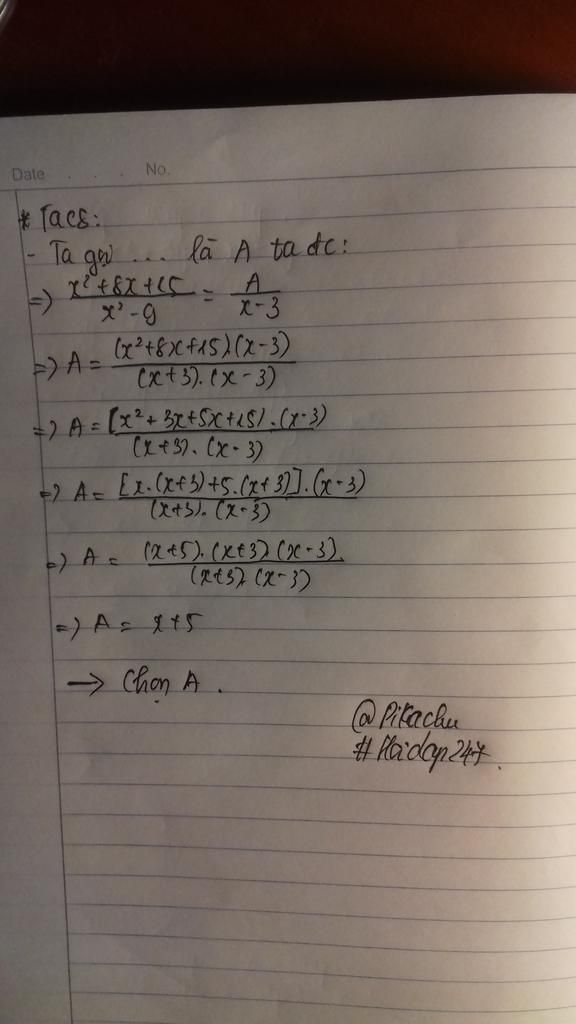 Date . . . No.
* Ta có:
- Ta gọi ... là A ta đc:
=> x²+8x+15 / x²-9 = A / x-3
=> A = (x²+8x+15).(x-3) / (x+3).(x-3)
=> A = [x²+3x+5x+15).(x-3) / (x+3).(x-3)
=> A = [x.(x+3)+5.(x+3)].(x-3) / (x+3).(x-3)
=> A = (x+5).(x+3).(x-3). / (x+3).(x-3)
=> A = x+5
→ Chọn A.
@Pikachu
#Hoidap247.